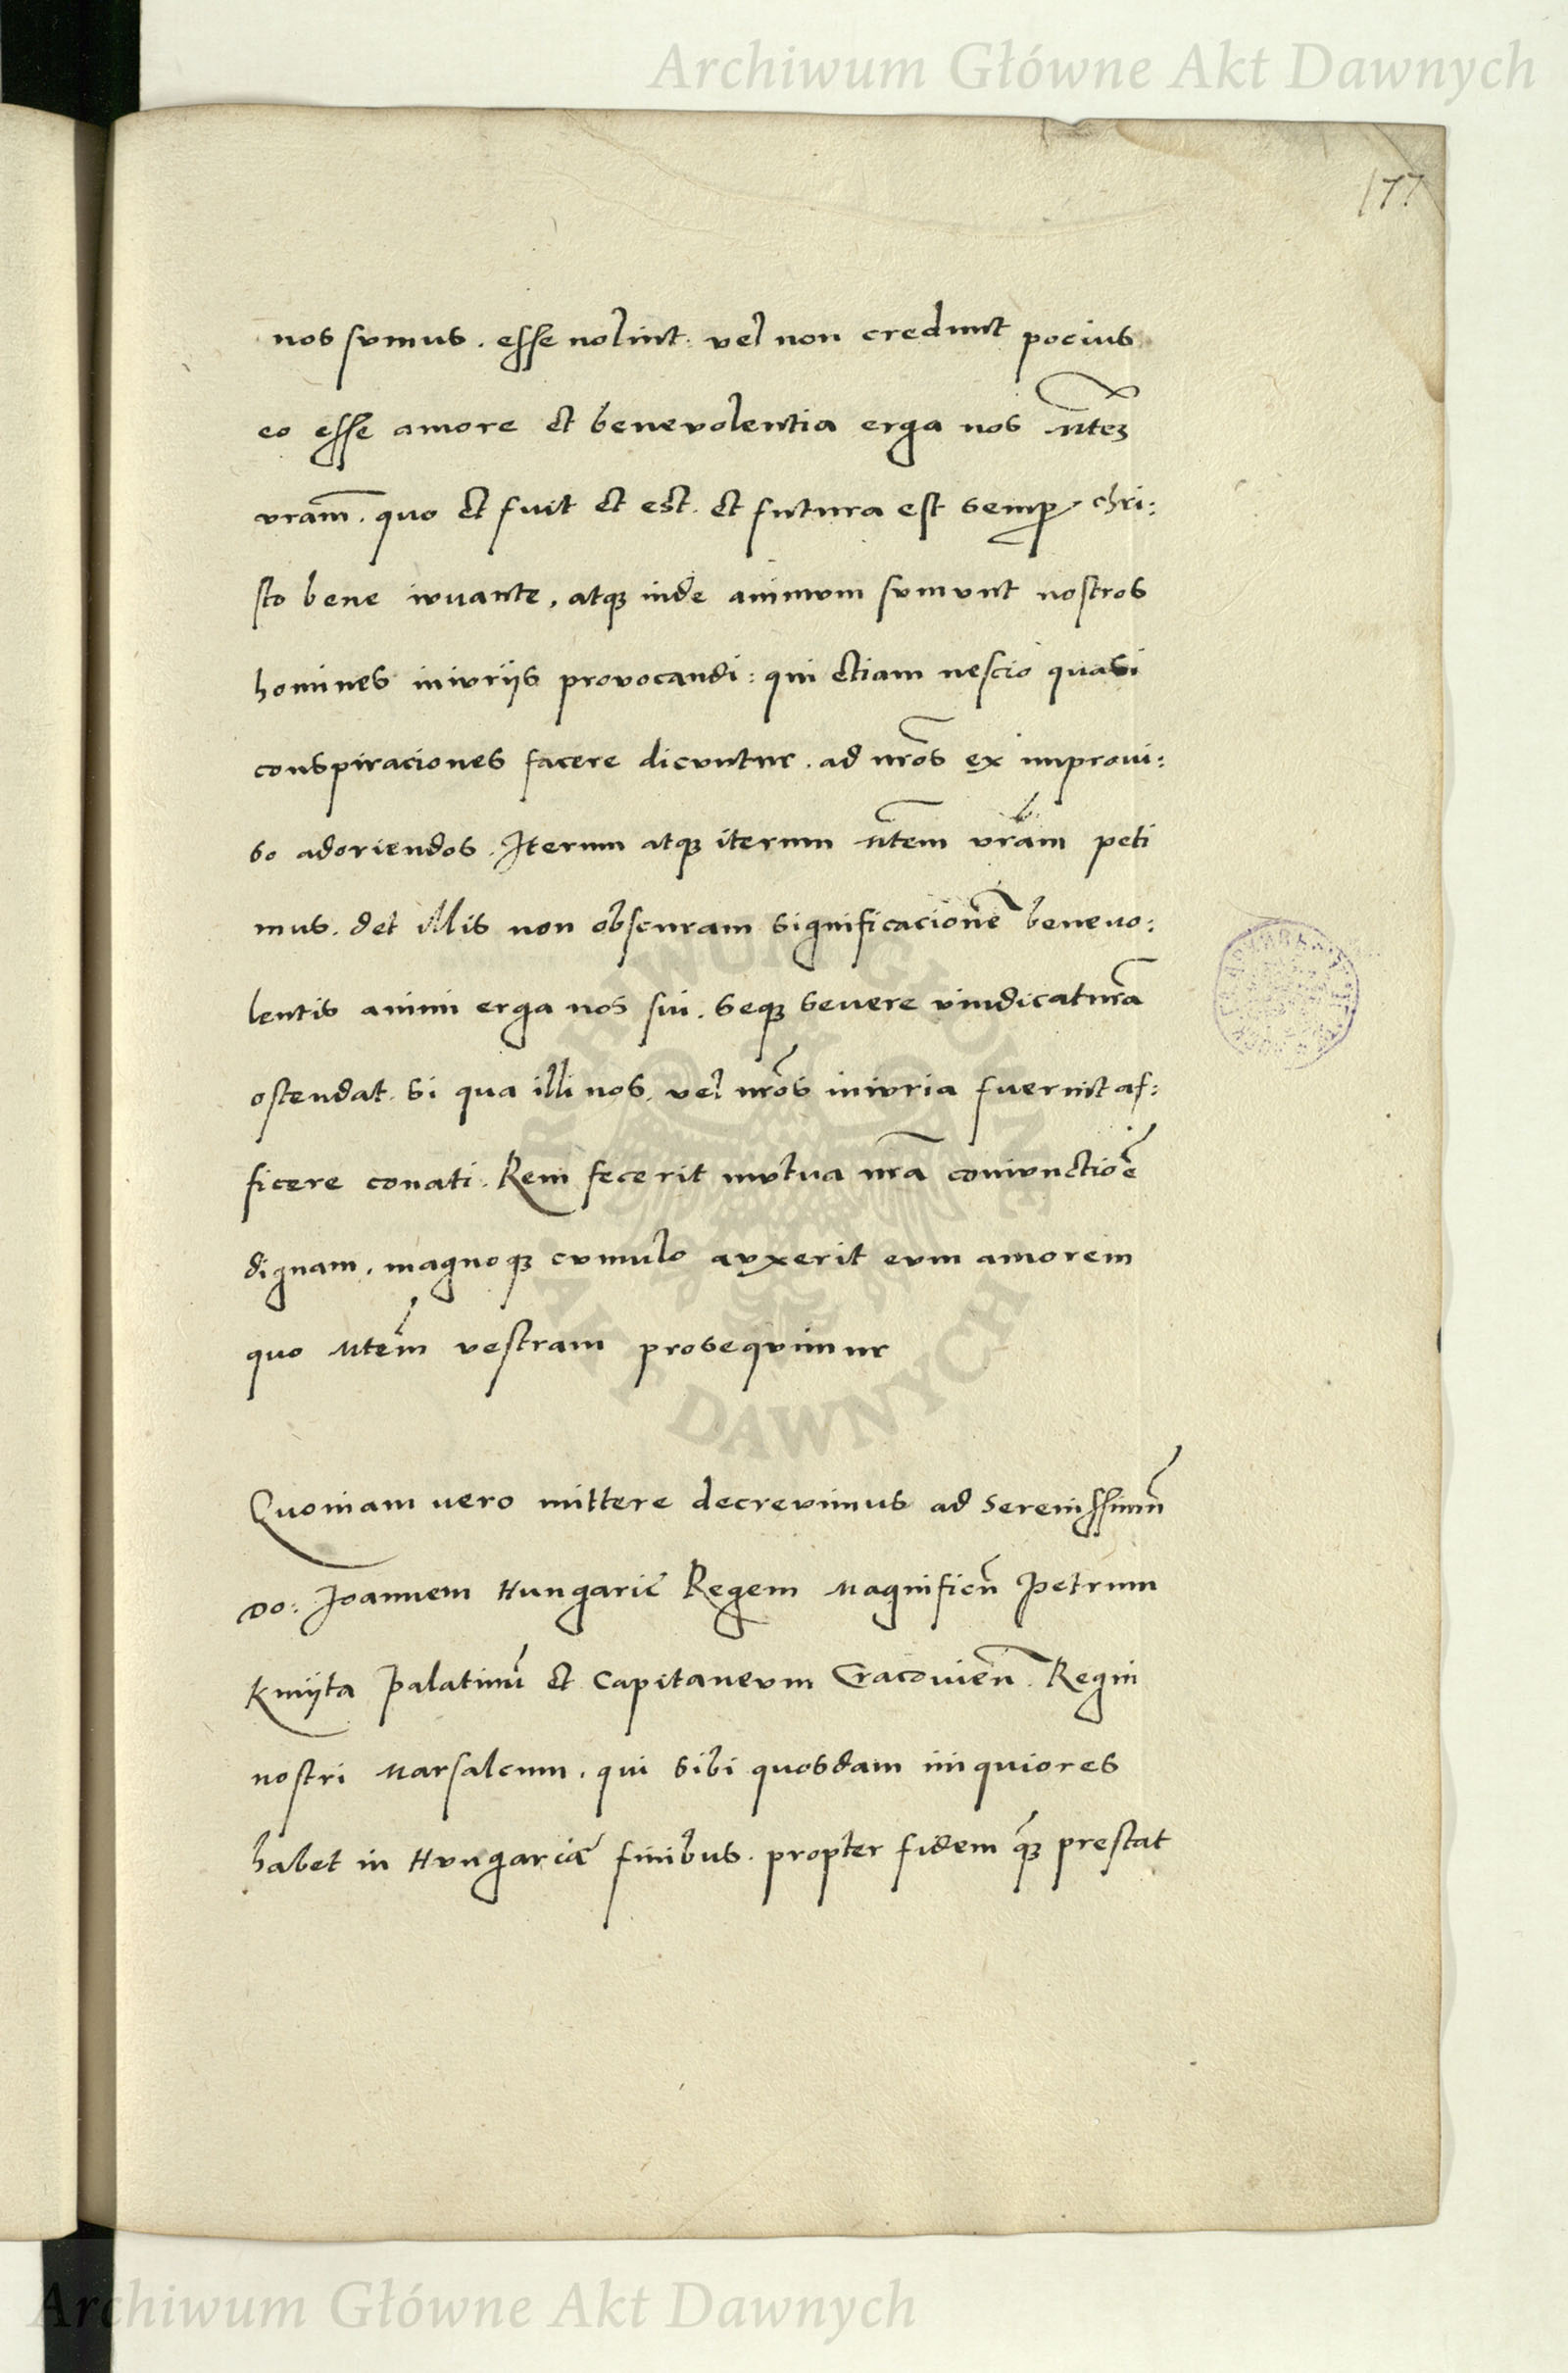 Archiwum Główne Akt Dawnych
177
nos sumus. esse nolint. vel non credunt pocius
eo esse amore et benevolentia erga nos Mtem
vram̄. quo et fuit et est. et futura est semp chri:
sto bene iuvante, atqꝫ inde animum sumunt nostros
homines iniuriis provocandi: qui etiam nescio quasi
conspiraciones facere dicuntur. ad nr̄os ex improui:
so adoriendos. Iterum atqꝫ iterum Mtem vrām peti
mus. det illis non obscuram significacionē benevo:
lentis animi erga nos sui. seqꝫ severe vindicaturā
ostendat. si qua illi nos. vel nrōs iniuria fuerint af:
ficere conati. Rem fecerit mutua nrā coniunctiōe
dignam, magnoqꝫ cumulo auxerit eum amorem
quo Mtem̄ vestram prosequimur
Quoniam vero mittere decrevimus ad Serenissimū
Do: Joannem Hungarie Regem Magnificū Petrum
Kmijta Palatinū et Capitaneum Cracovien̄. Regni
nostri Marsalcum. qui sibi quosdam iniquiores
habet in Hungariæ finibus. propter fidem qꝫ prestat
ARCHIWUM GŁÓWNE AKT DAWNYCH
Archiwum Główne Akt Dawnych